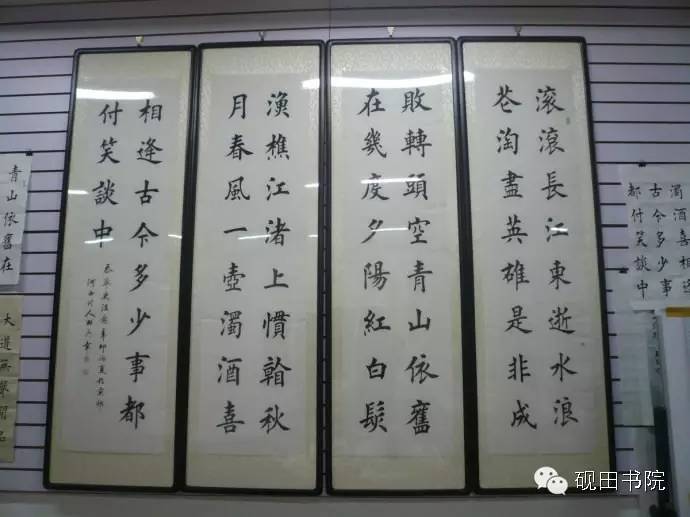 滚滚長江東逝水浪
花淘盡英雄是非成
敗轉頭空青山依舊
在幾度夕陽紅白髮
漁樵江渚上慣看秋
月春風一壺濁酒喜
相逢古今多少事都
付笑談中
濁酒喜相逢
古今多少事
都付笑談中
青山依舊在
大道無聲
砚田书院